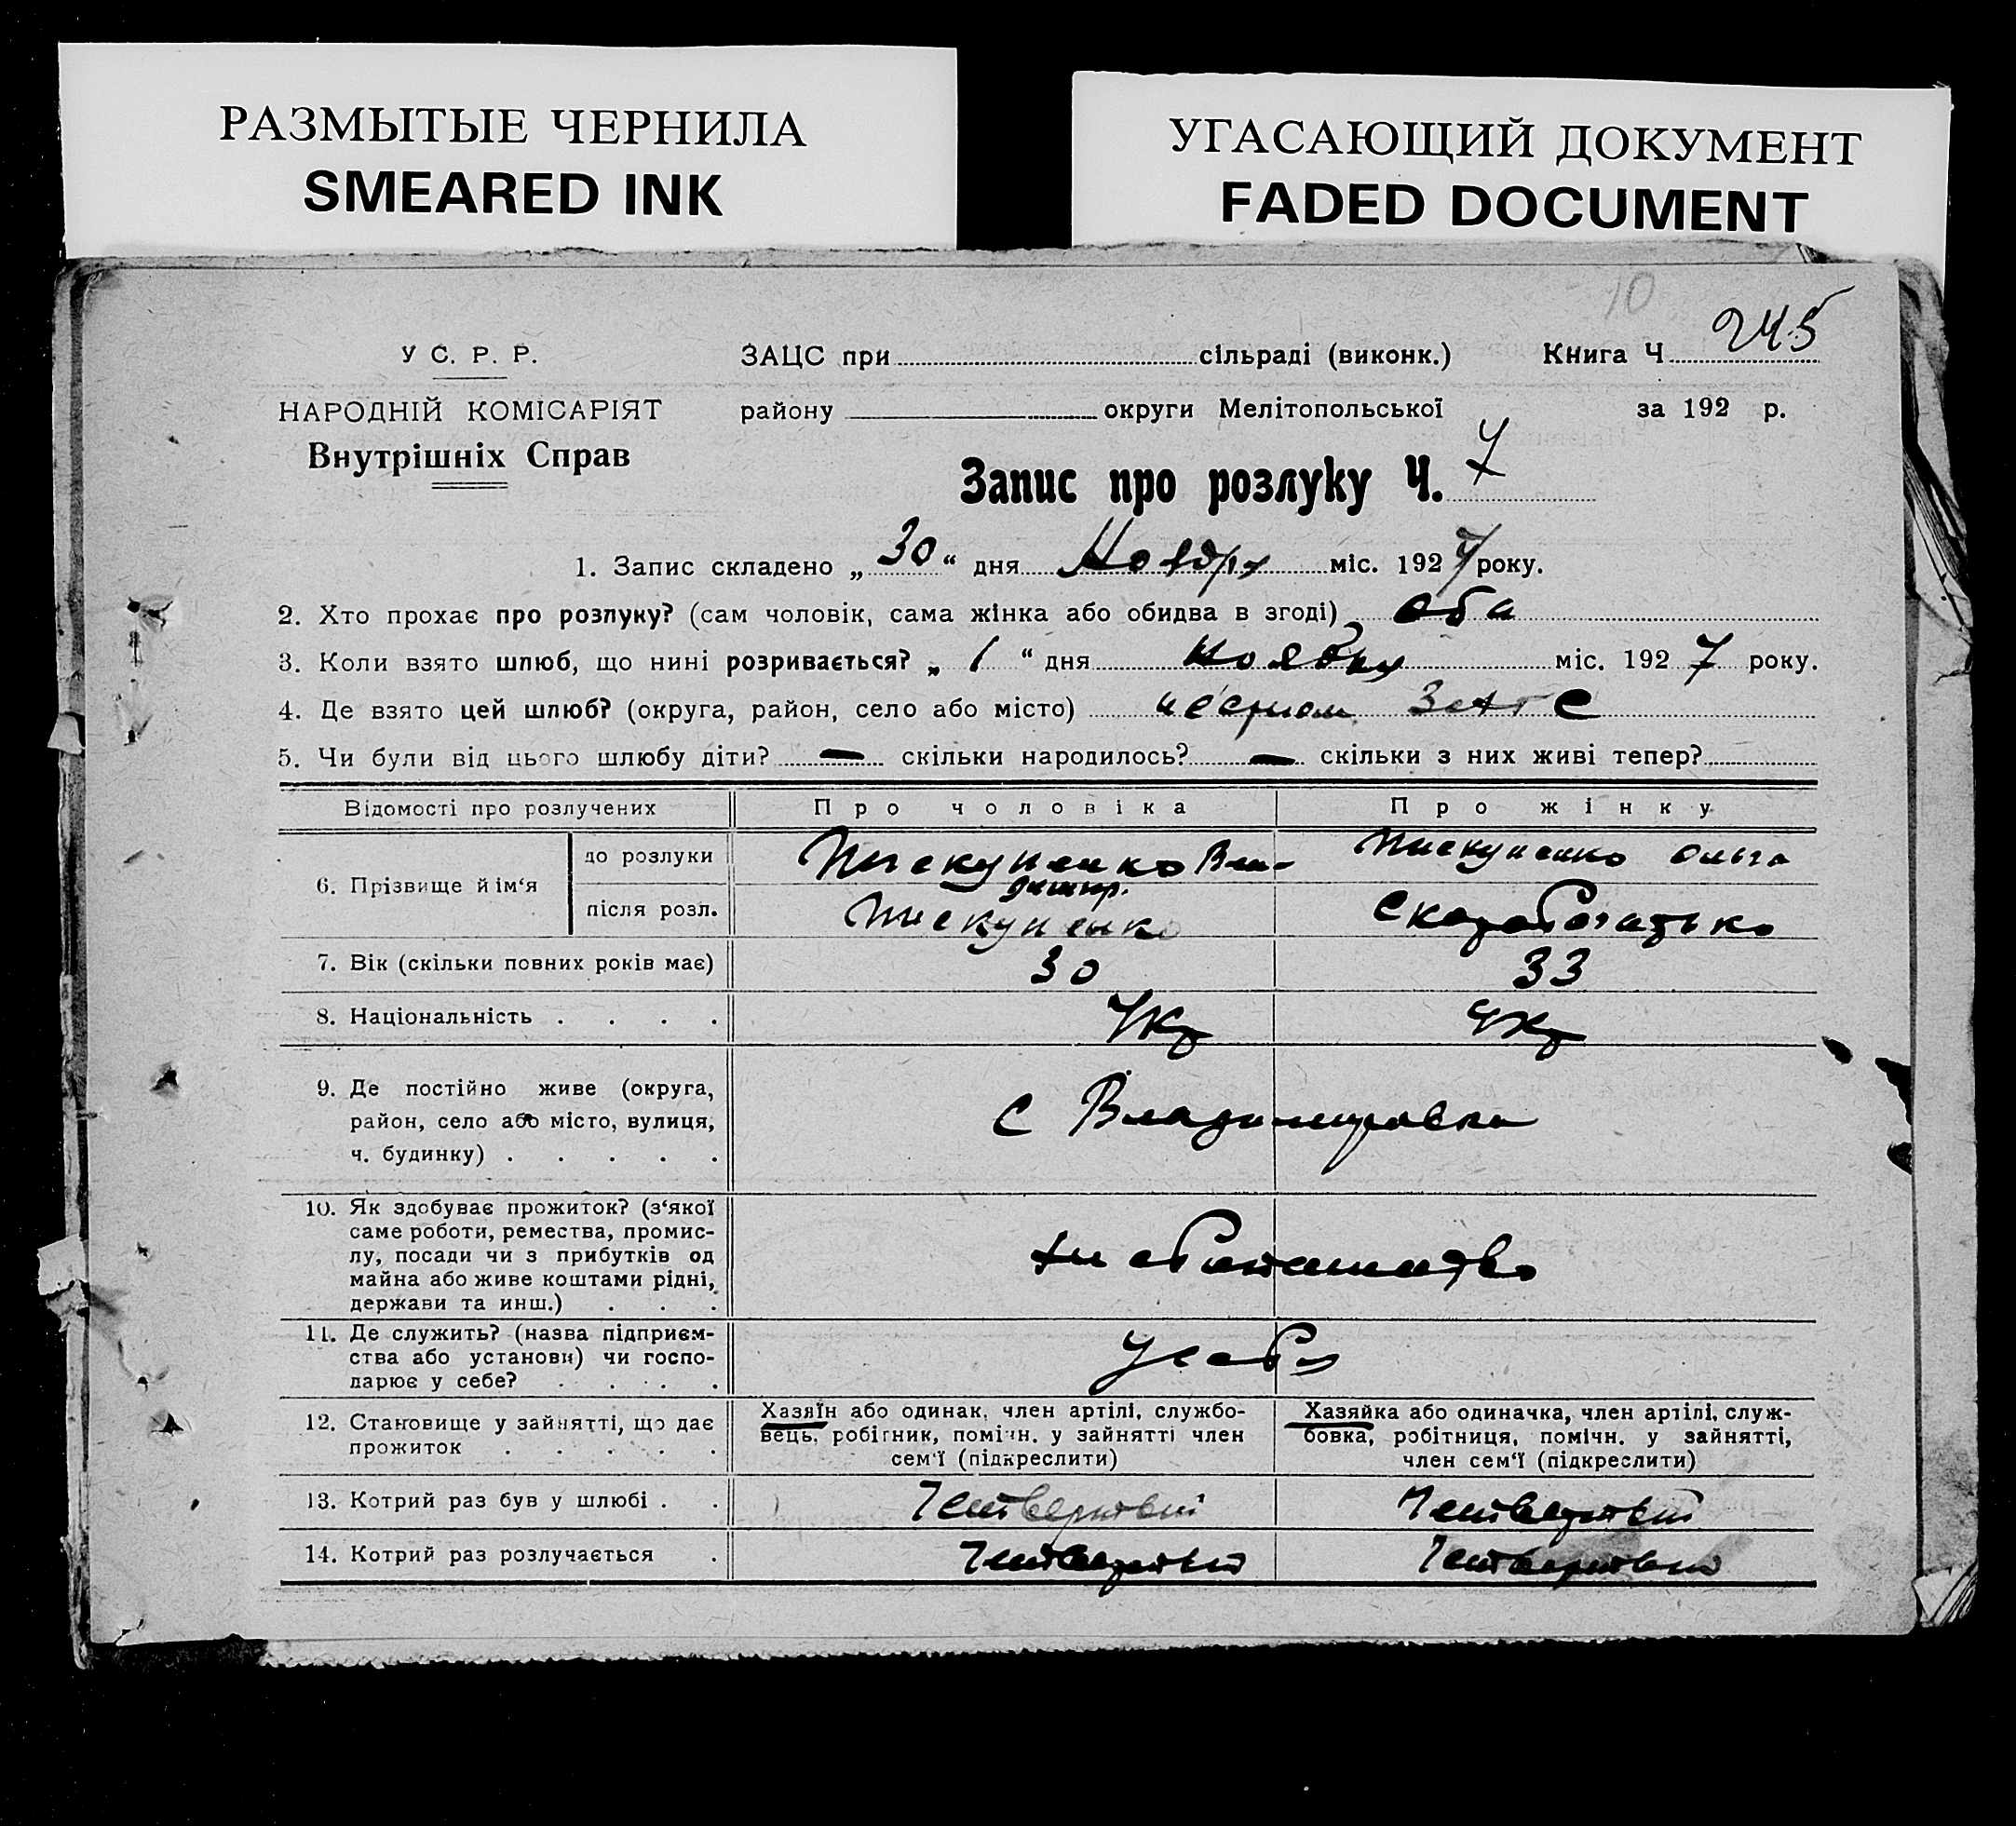 РАЗМЫТЫЕ ЧЕРНИЛА
SMEARED INK
УГАСАЮЩИЙ ДОКУМЕНТ
FADED DOCUMENT
10
У С. Р. Р.
ЗАЦС при сільраді (виконк.) Книга Ч 245
НАРОДНІЙ КОМІСАРІЯТ
району округи Мелітопольської за 192 р.
Внутрішніх Справ
Запис про розлуку Ч. 7
1. Запис складено „ 30 “ дня Ноября міс. 1927 року.
2. Хто прохає про розлуку? (сам чоловік, сама жінка або обидва в згоді) оба
3. Коли взято шлюб, що нині розривається? „ 1 “ дня ноября міс. 1927 року.
4. Де взято цей шлюб? (округа, район, село або місто) Загсе
5. Чи були від цього шлюбу діти? — скільки народилось? — скільки з них живі тепер?
Відомості про розлучених Про чоловіка Про жінку
6. Прізвище й ім‘я
до розлуки Пискуненко Вла-димир. Пискуненко Ольга
після розл. Пискуненко Скоробогатько
7. Вік (скільки повних років має) 30 33
8. Національність . . . . Укр Укр
9. Де постійно живе (округа,
район, село або місто, вулиця,
ч. будинку) . . . . .
с Владимировка
10. Як здобуває прожиток? (з‘якої
саме роботи, ремества, промис-
лу, посади чи з прибутків од
майна або живе коштами рідні,
держави та инш.) . . .
хлебопашество
11. Де служить? (назва підприєм-
ства або установи) чи госпо-
дарює у себе? . . . .
У себя
12. Становище у зайнятті, що дає
прожиток . . . . .
Хазяїн або одинак, член артілі, службо-
вець, робітник, помічн. у зайнятті член
сем‘ї (підкреслити)
Хазяйка або одиначка, член артілі, служ-
бовка, робітниця, помічн. у зайнятті,
член сем‘ї (підкреслити)
13. Котрий раз був у шлюбі . . Четвертый Четвертый
14. Котрий раз розлучається . Четвертый Четвертый